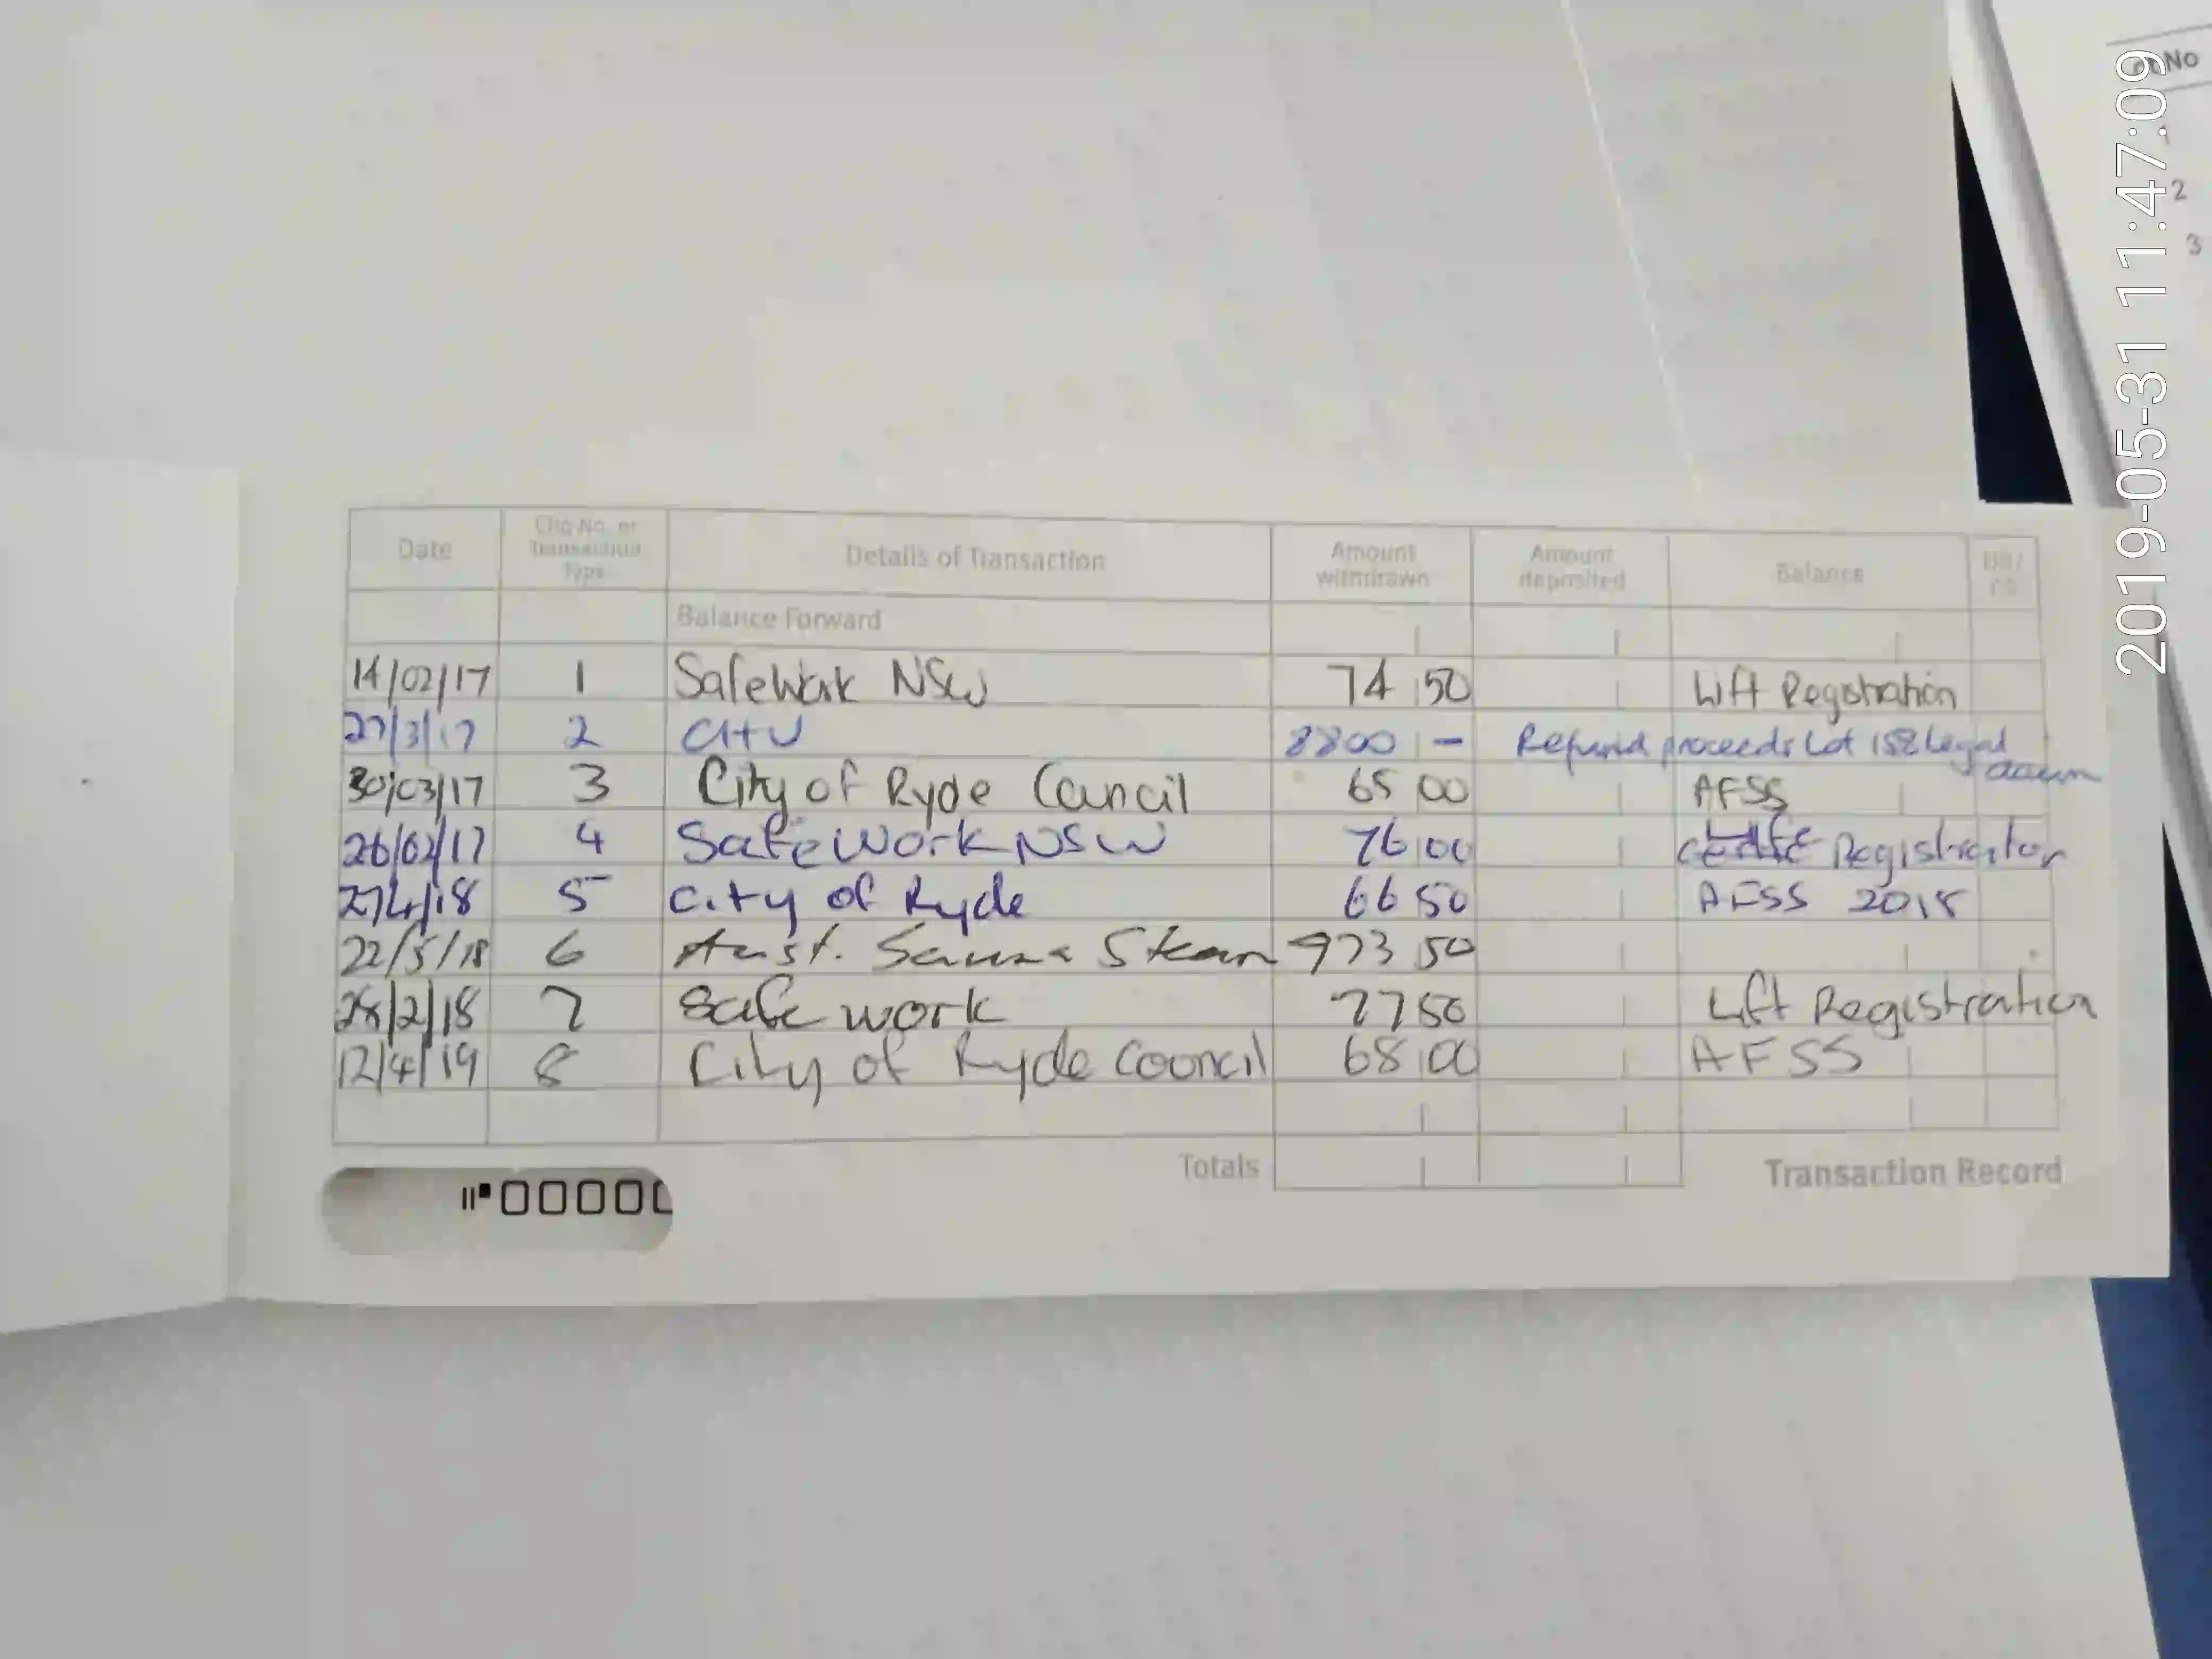 2019-05-31 11:47:09
No
2
3
Date Chq No. or Transaction Type Details of Transaction Amount withdrawn Amount deposited Balance
Balance Forward
14/02/17 1 SafeWork NSW 74 50 Lift Registration
27/3/17 2 8800 - Refund proceeds Lot 158 Legal
30/03/17 3 City of Ryde Council 65 00 AFSS
26/02/17 4 SafeWork NSW 76 00 Registration
27/4/18 5 City of Ryde 66 50 AFSS 2018
22/5/18 6 Aust. Sauna Steam 973 50
28/2/18 7 Safe work 77 50 Lift Registration
12/4/19 8 City of Ryde Council 68 00 AFSS
Totals Transaction Record
0000